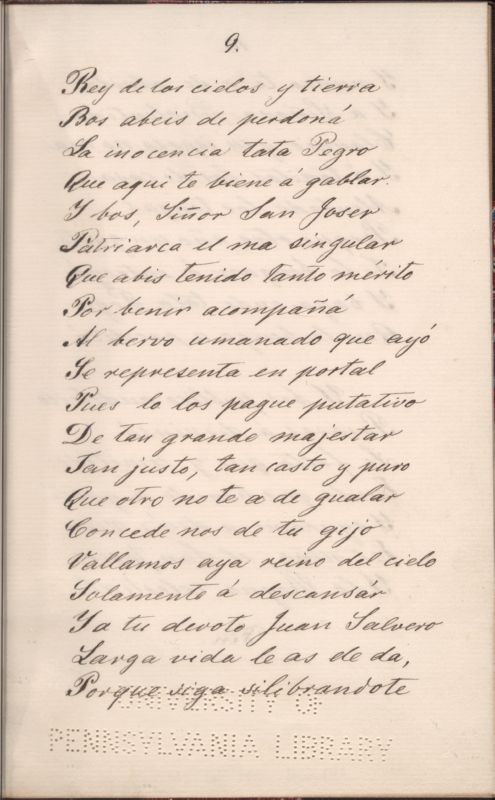 9.
Rey de los cielos y tierra
Bos abeis de perdoná
La inocencia tata Pegro
Que aqui te biene á gablar.
Y bos, Siñor San Joser
Patriarca el ma singular
Que abis tenido tanto mérito
Por benir acompañá
Al bervo umanado que ayó
Se representa en portal
Pues lo los pague putativo
De tan grande majestar
Tan justo, tan casto y puro
Que otro no te a de gualar
Concede nos de tu gijo
Vallamos aya reino del cielo
Solamente á descansár
Y a tu devoto Juan Salvero
Larga vida le as de da,
Porque siga silibrandote
UNIVERSITY OF
PENNSYLVANIA LIBRARY